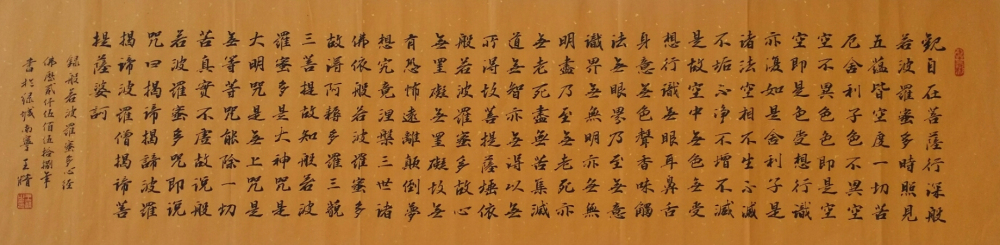 觀自在菩薩行深般
若波羅蜜多時照見
五蘊皆空度一切苦
厄舍利子色不異空
空不異色色即是空
空即是色受想行識
亦復如是舍利子是
諸法空相不生不滅
不垢不净不增不減
是故空中无色无受
想行識无眼耳鼻舌
身意无色聲香味觸
法无眼界乃至无意
識界无無明亦无無
明盡乃至无老死亦
无老死盡無苦集滅
道无智亦无得以无
所得故菩提薩埵依
般若波羅蜜多故心
无罣礙无罣礙故无
有恐怖遠離顛倒夢
想究竟涅槃三世諸
佛依般若波羅蜜多
故得阿耨多羅三藐
三菩提故知般若波
羅蜜多是大神咒是
大明咒是无上咒是
无等等咒能除一切
苦真實不虛故說般
若波羅蜜多咒即說
咒曰揭諦揭諦波羅
揭諦波羅僧揭諦菩
提薩婆訶
錄般若波羅蜜多心經
佛歷貳仟伍佰伍拾年
書於綠城南寧王